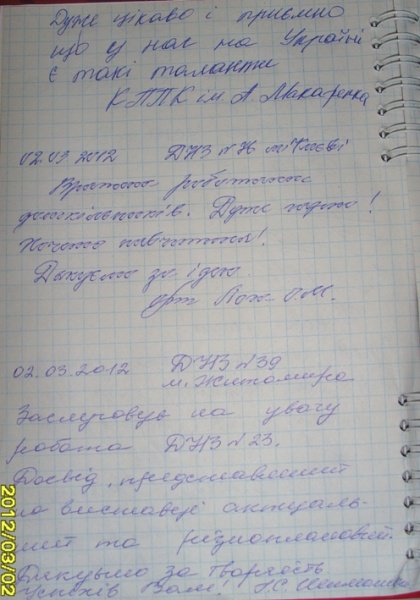 Дуже цікаво і приємно
що у нас на Україні
є такі таланти
КППК ім. А. Макаренка
02.03.2012 ДНЗ №76 м. Києві
Вразила робота
дошкільників. Дуже гарно!
Хочемо навчитися!
Дякуємо за ідею
О.М.
02.03.2012 ДНЗ №39
м. Житомира
Заслуговує на увагу
робота ДНЗ №23.
Досвід, представлений
на виставці актуаль-
ний та різноплановий.
Дякуємо за творчість
Успіхів Вам!
2012/03/02